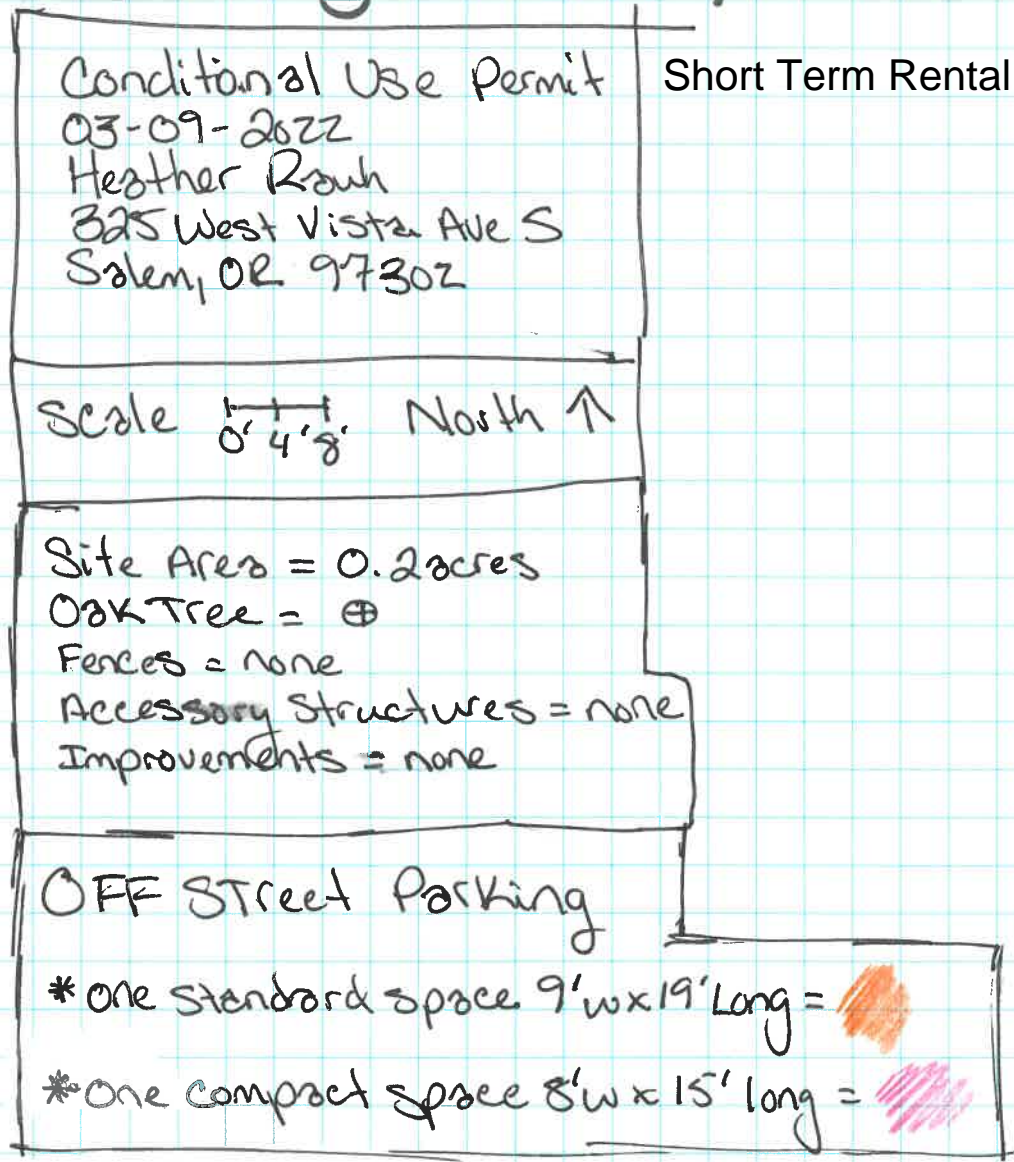 Conditional Use Permit
Short Term Rental
03-09-2022
Heather Rauh
325 West Vista Ave S
Salem, OR 97302
Scale 0' 4' 8' North ↑
Site Area = 0.2 acres
Oak Tree = ⊕
Fences = none
Accessory Structures = none
Improvements = none
OFF STreet Parking
* one standard space 9'w x 19' Long =
* one compact space 8'w x 15' long =